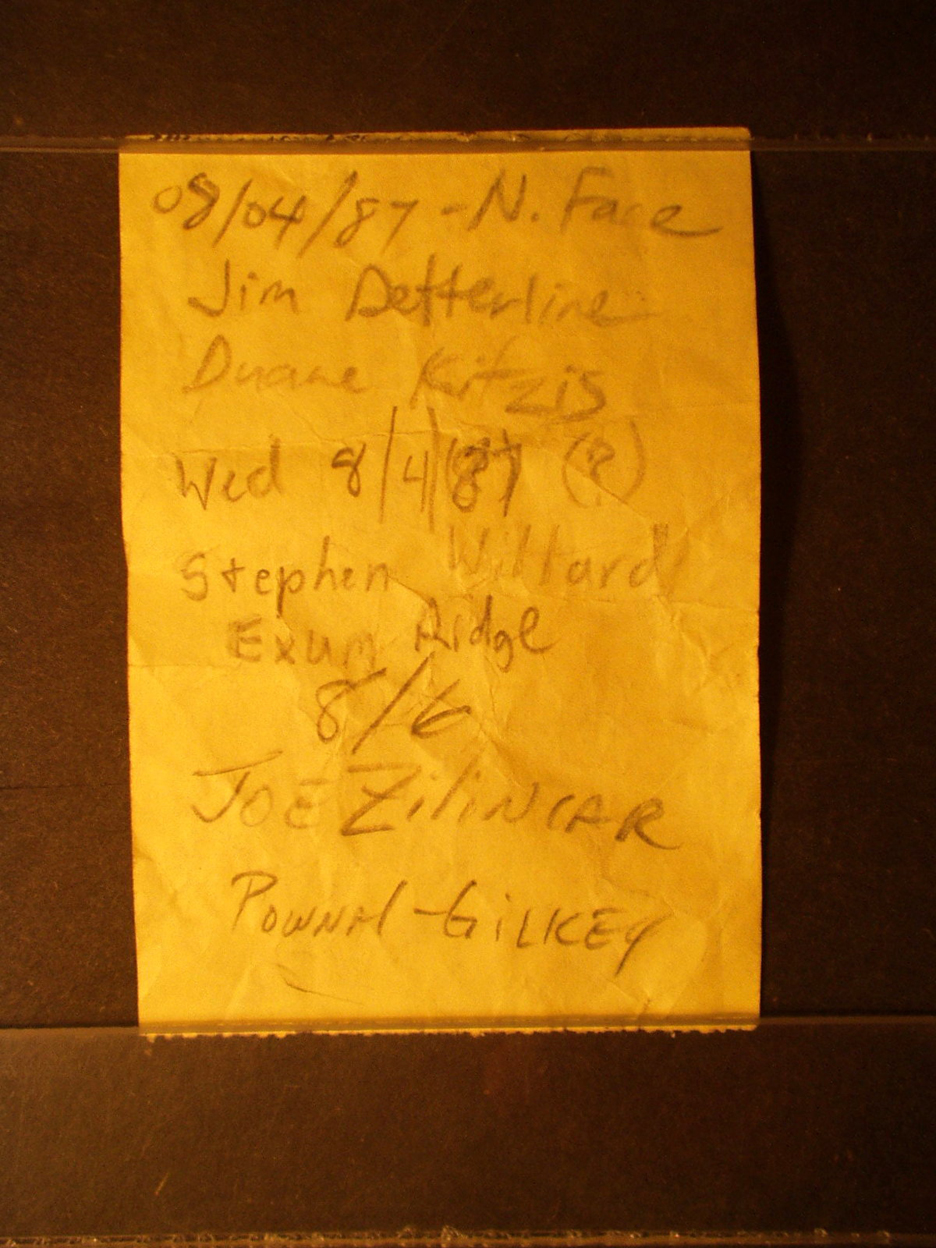 08/04/87 - N. Face
Jim Detterline
Duane Kitzis
Wed 8/4/87 (?)
Stephen Willard
Exum Ridge
8/6
JOE ZiliNCAR
POWNAl - GiLKEY